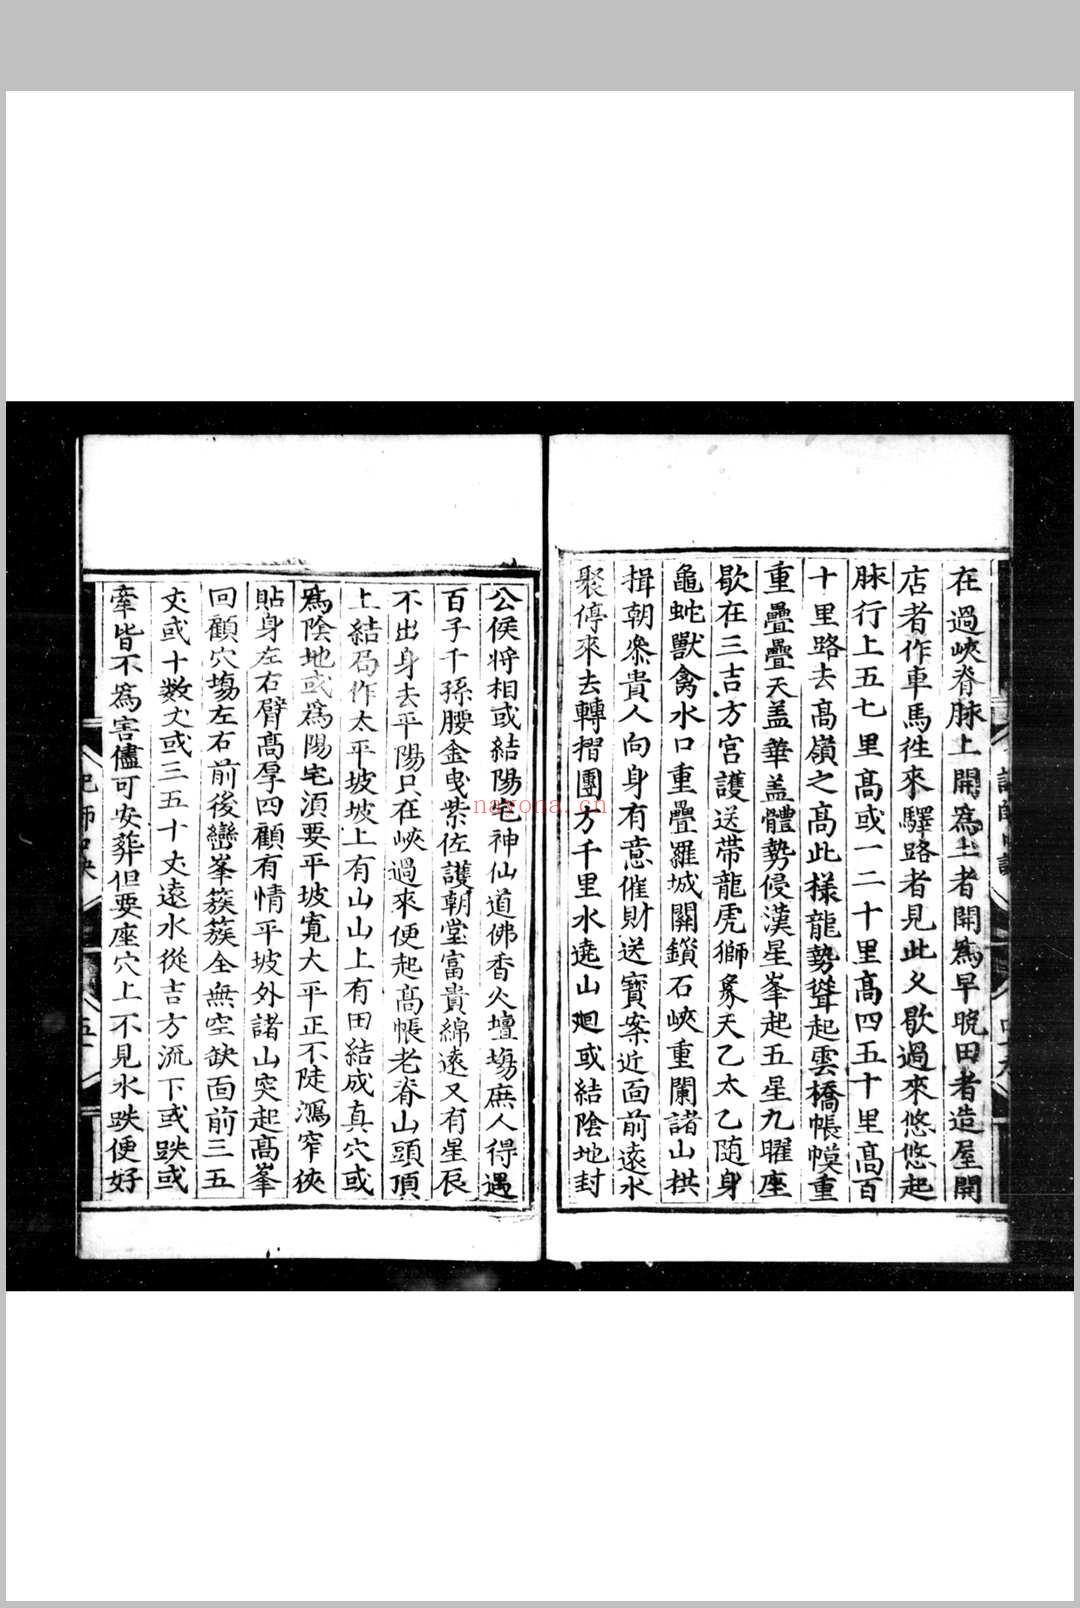 在過峽脊脉上開爲土者開爲早晩田者造屋開
店者作車馬徃來驛路者見此乂歇過來悠悠起
脉行上五七里髙或一二十里髙四五十里髙百
十里路去髙嶺之髙此様龍勢聳起雲橋帳幙重
重疊疊天盖華盖體勢侵漢星峯起五星九曜座
歇在三吉方宫護送帶龍虎獅象天乙太乙随身
龜虵獸禽水口重疊羅城關鎻石峽重闌諸山拱
揖朝衆貴人向身有意催財送寳案近面前遠水
聚停來去轉摺團方千里水遶山廻或結隂地封
公侯将相或結陽宅神仙道佛香火壇塲庶人得遇
百子千孫腰金曳紫佐護朝堂富貴綿遠又有星辰
不出身去平陽只在峽過來便起髙帳老脊山頭頂
上結局作太平坡坡上有山山上有田結成真穴或
爲隂地或爲陽宅湏要平坡寛大平正不陡瀉窄俠
貼身左右臂髙厚四顧有情平坡外諸山突起髙峯
回顧穴塲左右前後巒峯簇簇全無空缺面前三五
丈或十數丈或三五十丈遠水從吉方流下或跌或
牽皆不爲害儘可安葬但要座穴上不見水跌便好
師口訣
五十
nayona.cn